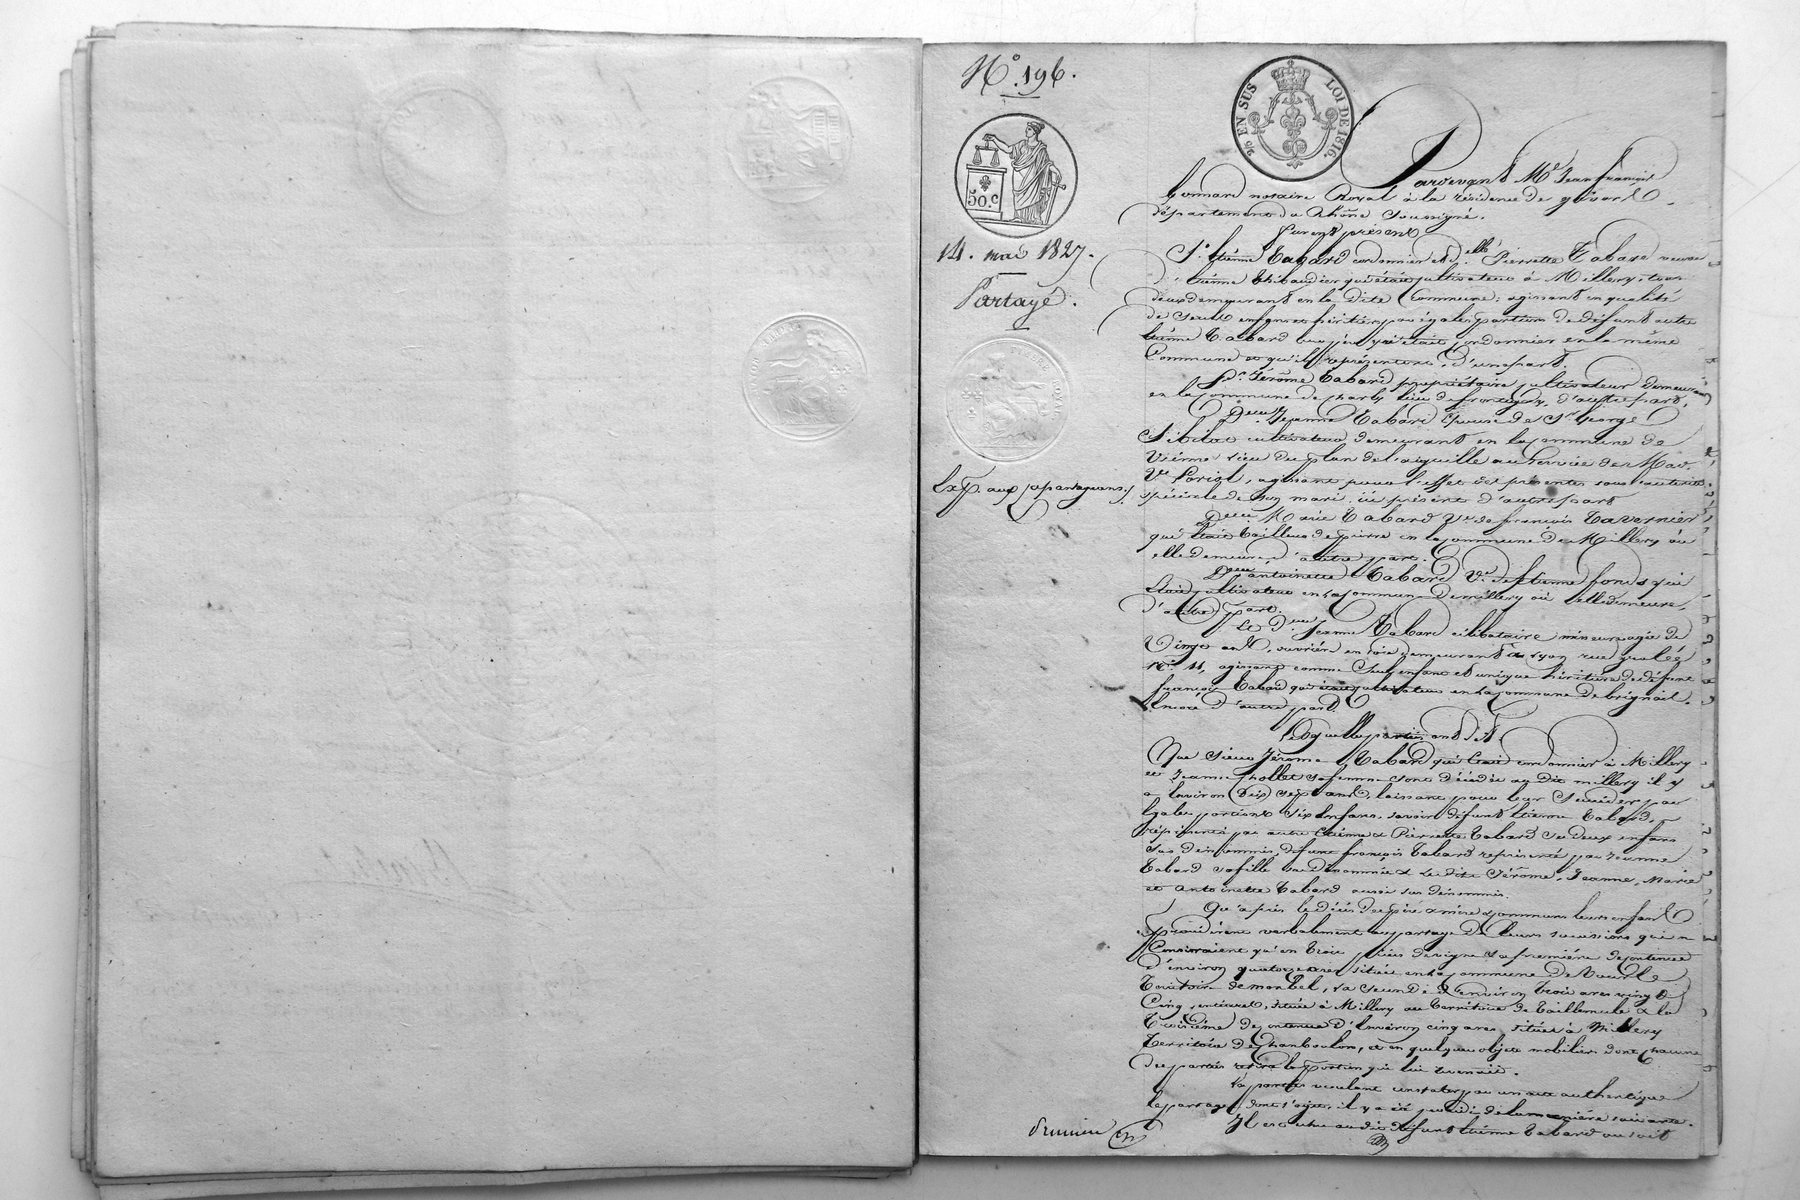 N° 196.
25 EN SUS
LOI DE 1816.
50.c
14. mai 1827.
Partage.
Exp. aux copartageans
Pardevant Me Jean françois
Gonnard notaire Royal à la résidence de givors
département du Rhône soussigné.
Furent présens
Sr. Etienne Tabard cordonnier et d.elle Pierrette Tabard veuve
d'Etienne Thibaudier qui était cultivateur à Millery, tous
deux demeurant en la dite Commune; agissant en qualité
de seuls enfans et héritiers par égales portions de défunt autre
Etienne Tabard qui était cordonnier en la même
Commune et qu'ils représentent, d'une part.
Sr. Jérôme Tabard propriétaire cultivateur demeurant
en la commune de charly lieu de frontigny, d'autre part,
Jeanne Tabard Epouse de Sr George
cultivateur demeurant en la commune de
lieu du plan de l'aiguille au service de Mad.
Ve, agissant pour l'effet des présentes sous l'autorité
spéciale de son mari ici présent d'autre part
Marie Tabard Ve. de françois Tavernier
qui était tailleur de pierre en la commune de Millery où
elle demeure, d'autre part.
antoinette Tabard Ve. d'Etienne fond qui
était cultivateur en la commune de millery où elle demeure,
d'autre part.
Et Jeanne Tabard célibataire mineure agée de
Vingt ans, ouvrière en soie demeurant à Lyon rue
No. 11, agissant comme seule enfant et unique héritière de défunt
françois Tabard qui était cultivateur en la commune de brignais.
Encore d'autre part.
Lesquelles parties ont dit
Que sieur Jérome Tabard qui était cordonnier à Millery
et Jeanne chollet sa femme sont décédés au dit millery il y
a Environ Dix sept ans, laissant pour leur succéder par
égales portions six Enfans, savoir défunt Etienne Tabard,
représenté par autre Etienne & Pierrette Tabard ses deux enfans
sus dénommés, défunt françois Tabard représenté par Jeanne
Tabard sa fille sus dénommée & le dits Jérôme, Jeanne, Marie
et Antoinette Tabard aussi sus dénommés.
Qu'après le décès des père & mère communs leurs enfans
procédèrent verbalement au partage de leurs successions qui ne
Consistaient qu'en trois pièces de vigne la première de contenue
d'environ quatorze ares située en la commune de
Territoire de monbel, la seconde d'environ trois ares vingt
Cinq centiares, située à Millery au territoire de & la
Troisième de contenue d'Environ cinq ares située à Millery
Territoire de chanboulon, et en quelques objets mobiliers dont chacune
des parties retira la portion qui lui revenait.
Les parties voulant constater par un acte authentique
le partage dont s'agit, il y a été procédé de la manière suivante.
Il est échu au dit défunt Etienne Tabard ou soit